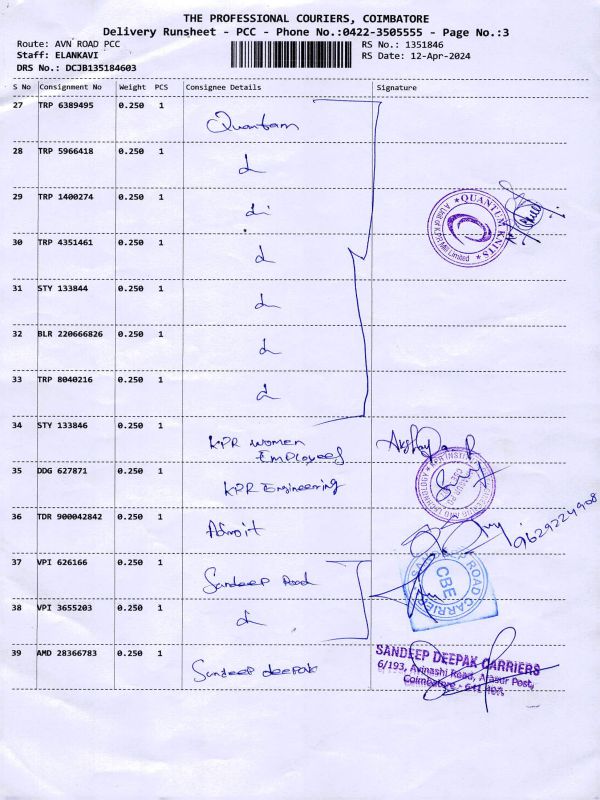 THE PROFESSIONAL COURIERS, COIMBATORE
Delivery Runsheet - PCC - Phone No.:0422-3505555 - Page No.:3
Route: AVN ROAD PCC
RS No.: 1351846
Staff: ELANKAVI
RS Date: 12-Apr-2024
DRS No.: DCJB135184603
S No Consignment No Weight PCS Consignee Details Signature
27 TRP 6389495 0.250 1
Quantam
28 TRP 5966418 0.250 1
29 TRP 1400274 0.250 1
QUANTUM KNITS
30 TRP 4351461 0.250 1
31 STY 133844 0.250 1
32 BLR 220666826 0.250 1
33 TRP 8040216 0.250 1
34 STY 133846 0.250 1
KPR women
Employees
35 DDG 627871 0.250 1
KPR Engineering
36 TDR 900042842 0.250 1
Adroit
9629224908
37 VPI 626166 0.250 1
Sandeep Road
SANDEEP ROAD CARRIERS
CBE
38 VPI 3655203 0.250 1
39 AMD 28366783 0.250 1
Sandeep deepak
SANDEEP DEEPAK CARRIERS
6/193, Avinashi Road, Arasur Post,
Coimbatore - 641 407.